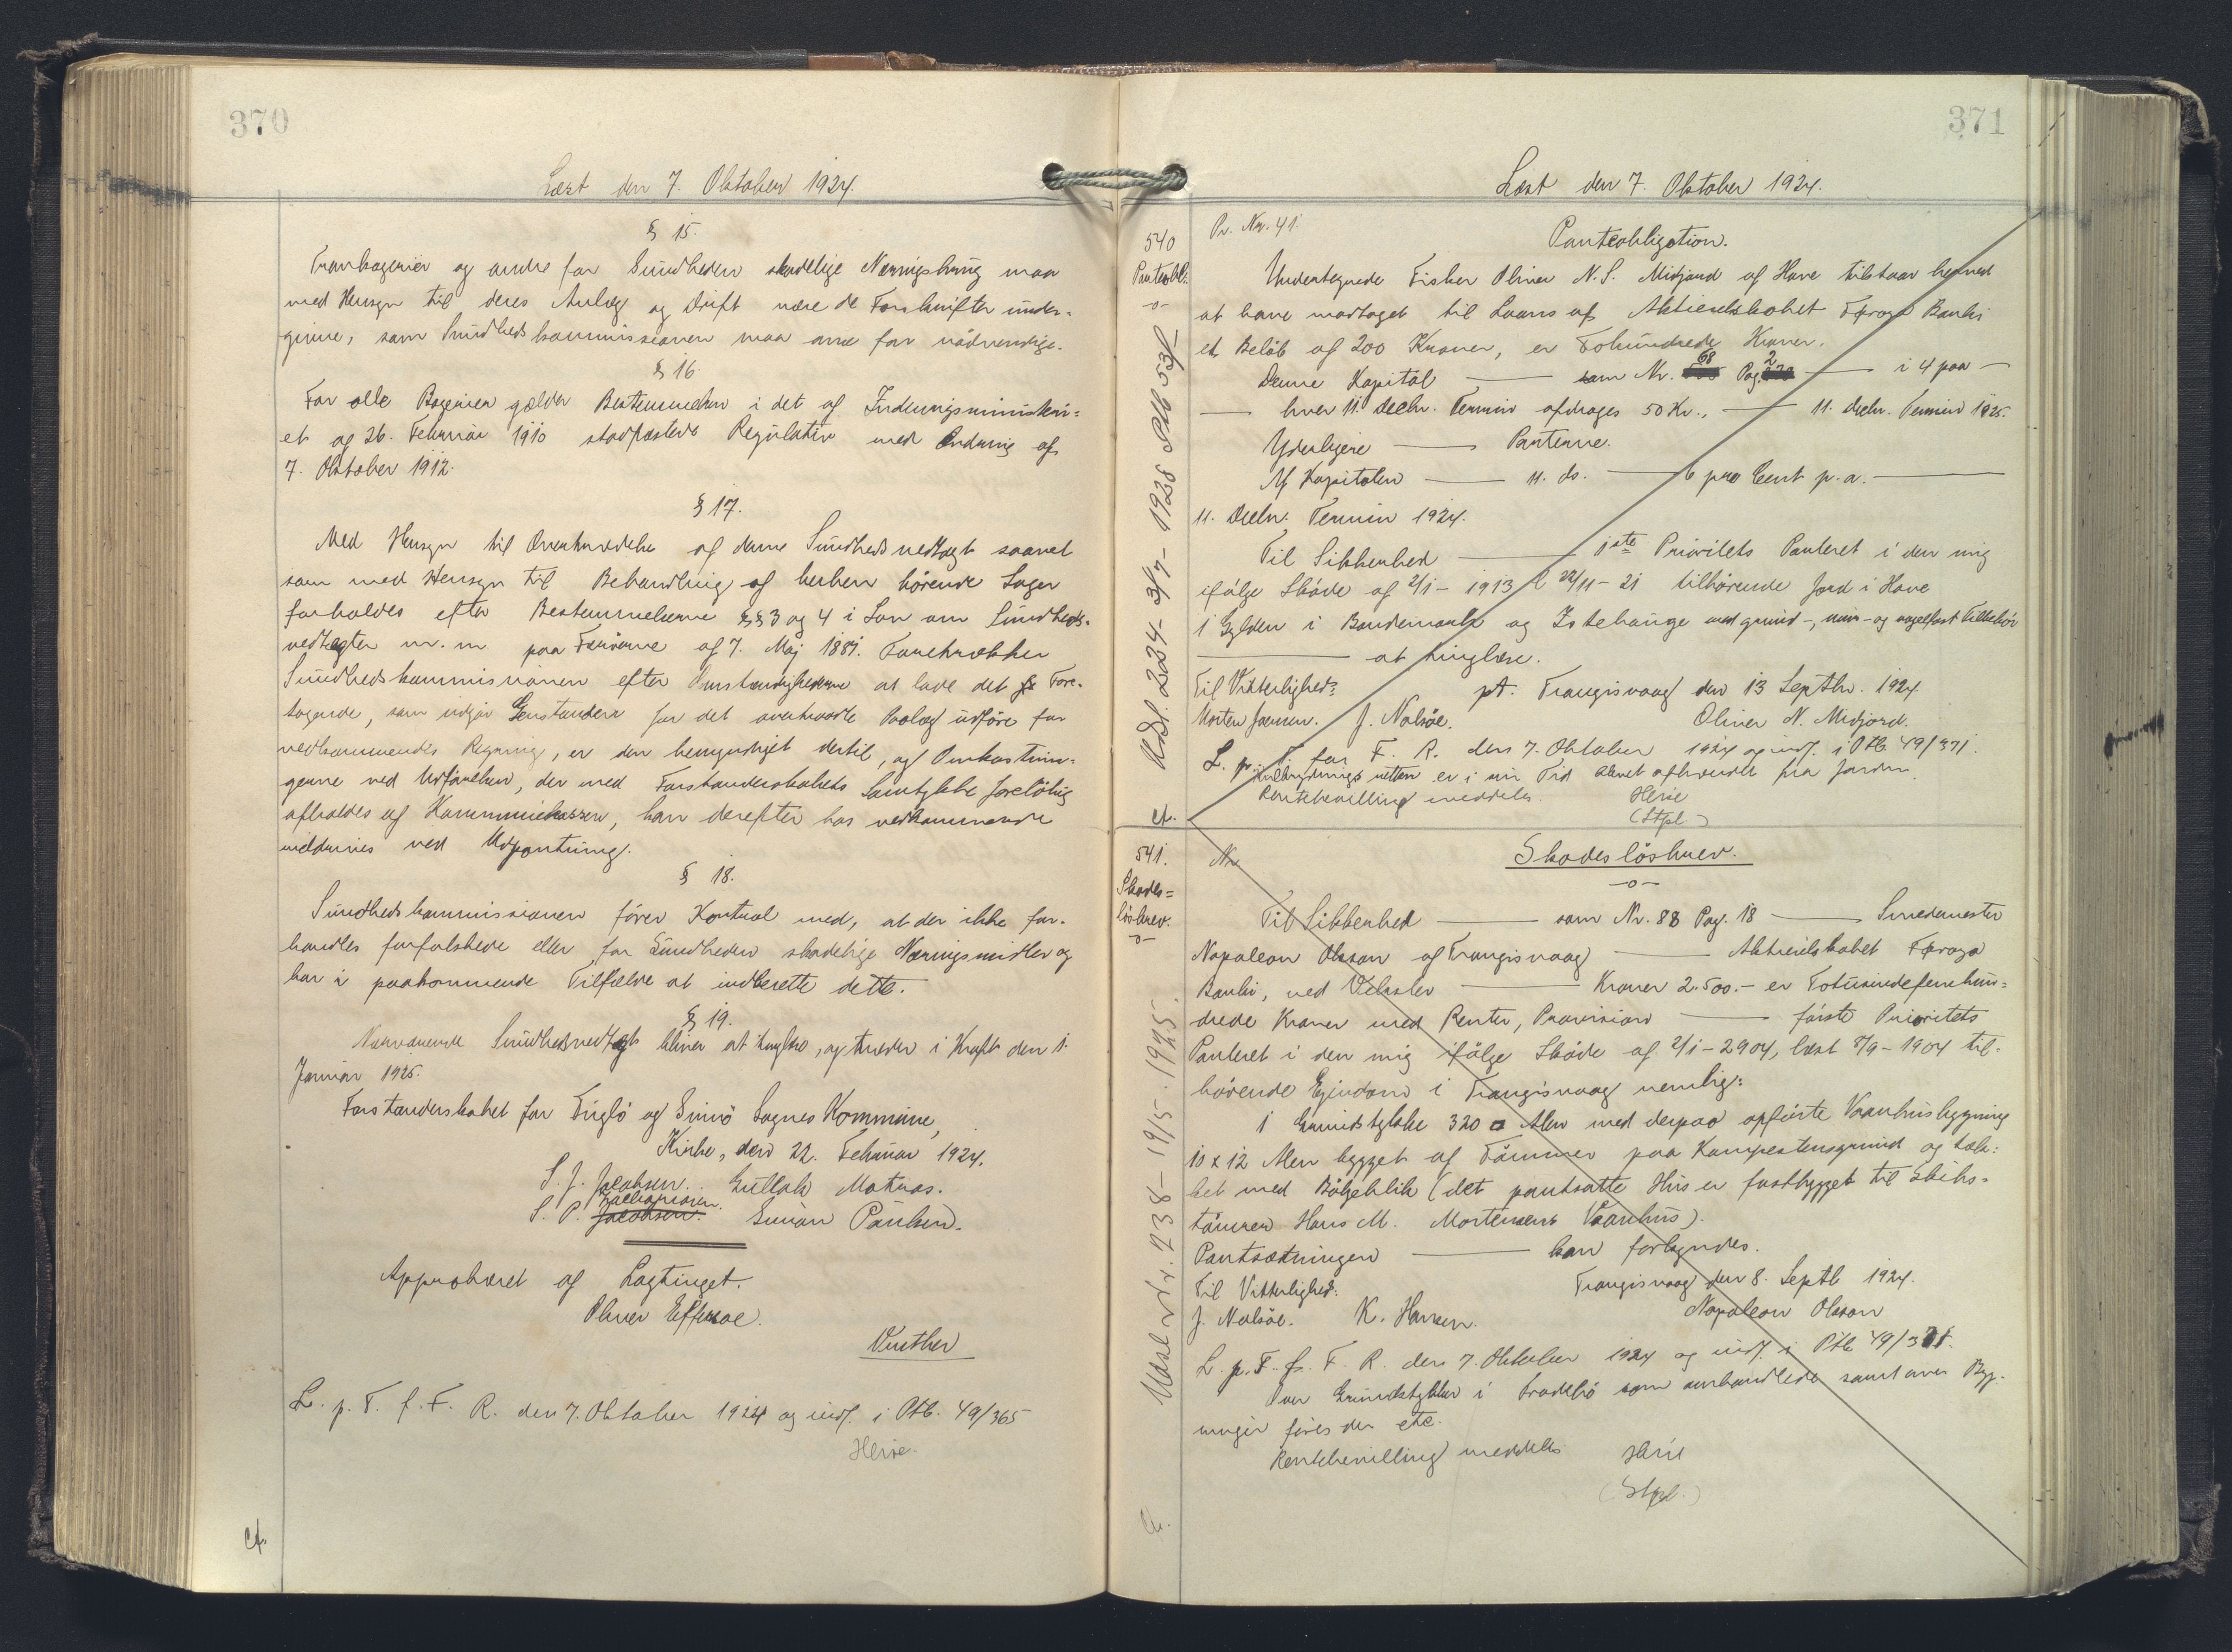 370
Læst den 7. Oktober 1924.
§ 15.
Trankogerier og andre for Sundheden skadelige Næringsbrug maa
med Hensyn til deres Anlæg og Drift være de Forskrifter under-
givne, som Sundhedskommissionen maa anse for nödvendige.
§ 16.
For alle Bagerier gælder Bestemmelser i det af Indenrigsministeri-
et og 26. Februar 1910 stadfæstede Regulativ med Ændring af
7. Oktober 1912.
§ 17.
Med Hensyn til Overtrædelse af denne Sundhedsvedtægt saavel
som med Hensyn til Behandling af herhen hörende Sager
forholdes efter Bestemmelserne §§ 3 og 4 i Lov om Sundheds-
vedtægter m. m. paa Færöerne af 7. Maj 1881. Foretrækker
Sundhedskommissionen efter Omstændighederne at lade det Fore-
tagende, som udgör Genstanden for det overtraadte Paalæg udföre for
vedkommendes Regning, er den bemyndiget dertil, og Omkostnin-
gerne ved Udförelsen, der med Forstanderskabets Samtykke foreløbig
afholdes af Kommunekassen, kan derefter hos vedkommende
inddrives ved Udpantning.
§ 18.
Sundhedskommissionen förer Kontrol med, at der ikke for-
handles forfalskede eller for Sundheden skadelige Næringsmidler og
har i paakommende Tilfælde at indberette dette.
§ 19.
Nærværende Sundhedsvedtægt bliver at tinglæse, og træder i Kraft den 1.
Januar 1925.
Forstanderskabet for Fuglö og Svinö Sognes Kommune,
Kirke, den 22. Februar 1924.
S. J. Jacobsen. Gullak Matras.
Zachariasen.
S. P. Jacobsen. Simon Paulsen.
Approberet af Lagtinget.
Oliver Effersøe.
L. p. T. f. F. R. den 7. Oktober 1924 og indf. i Ptb. 49/365
Herse.
cf.
371
Læst den 7. Oktober 1924.
540
Panteobl.
-o-
Pr. Nr. 41.
Panteobligation.
Undertegnede Fisker Oliver N. S. Midjord af Hove tilstaar herved
at have modtaget til Laans af Aktieselskabet Føroya Banki
et Beløb af 200 Kroner, er Tohundrede Kroner.
68 2
Denne Kapital — som Nr. Pag. — i 4 paa —
— hver 11. Decbr. Termin afdrages 50 Kr., — 11. Decbr. Termin 1925.
Yderligere — Panterne.
Af Kapitalen — 11. do. — 6 pro Cent p. a. —
11. Decbr. Termin 1924.
Til Sikkerhed — 1ste Prioritets Panteret i den mig
ifölge Sköde af 2/1 - 1913 & 22/11 - 21 tilhörende Jord i Hove
1 Gylden i Bondemark og Istehauge med grund-, mur- og nagelfast Tilbehör
— at tinglæse.
Til Vitterlighed: pt. Trangisvaag den 13 Septbr. 1924.
Morten Joensen. J. Nolsöe. Oliver N. Midjord.
L. p. T. for F. R. den 7. Oktober 1924 og indf. i Ptb. 49/371.
Indlösningsretten er i sin Tid blevet afhændet fra Jorden.
Rentebevilling meddeles. Herse
(Stpl.)
Udsl. 224 - 3/7 - 1928 Ptb 53/
cf.
541.
Skades=
löshrev.
-o-
Nr
Skadeslösbrev.
-o-
Til Sikkerhed — som Nr. 88 Pag. 18 — Smedemester
Napoleon Olsson af Trangisvaag — Aktieselskabet Føroya
Banki, ved Veksler — Kroner 2.500.- er Totusindefemhun=
drede Kroner med Renter, Provision — förste Prioritets
Panteret i den mig ifölge Sköde af 2/1 - 2904, læst 7/9 - 1904 til-
hörende Ejendom i Trangisvaag nemlig:
1 Grundstykke 320 □ Alen med derpaa opförte Vaanhusbygning
10 x 12 Alen bygget af Tömmer paa Kampestensgrund og tæk=
ket med Bölgeblik (det pantsatte Hus er fastbygget til Skibs=
tömrer Hans M. Mortensens Vaanhus).
Pantsætningen — kan forlyndes.
Til Vitterlighed: Trangisvaag den 8. Septb 1924.
J. Nolsöe. K. Hansen. Napoleon Olsson
L. p. T. f. F. R. den 7. Oktober 1924 og indf. i Ptb 49/371.
Paa Grundstykker i Trodlbö som omhandlede samt over Byg-
ninger föres der etc.
Rentebevilling meddeles Herse
(Stpl.)
Udsl. Nr. 738 - 19/5 - 1925.
cf.